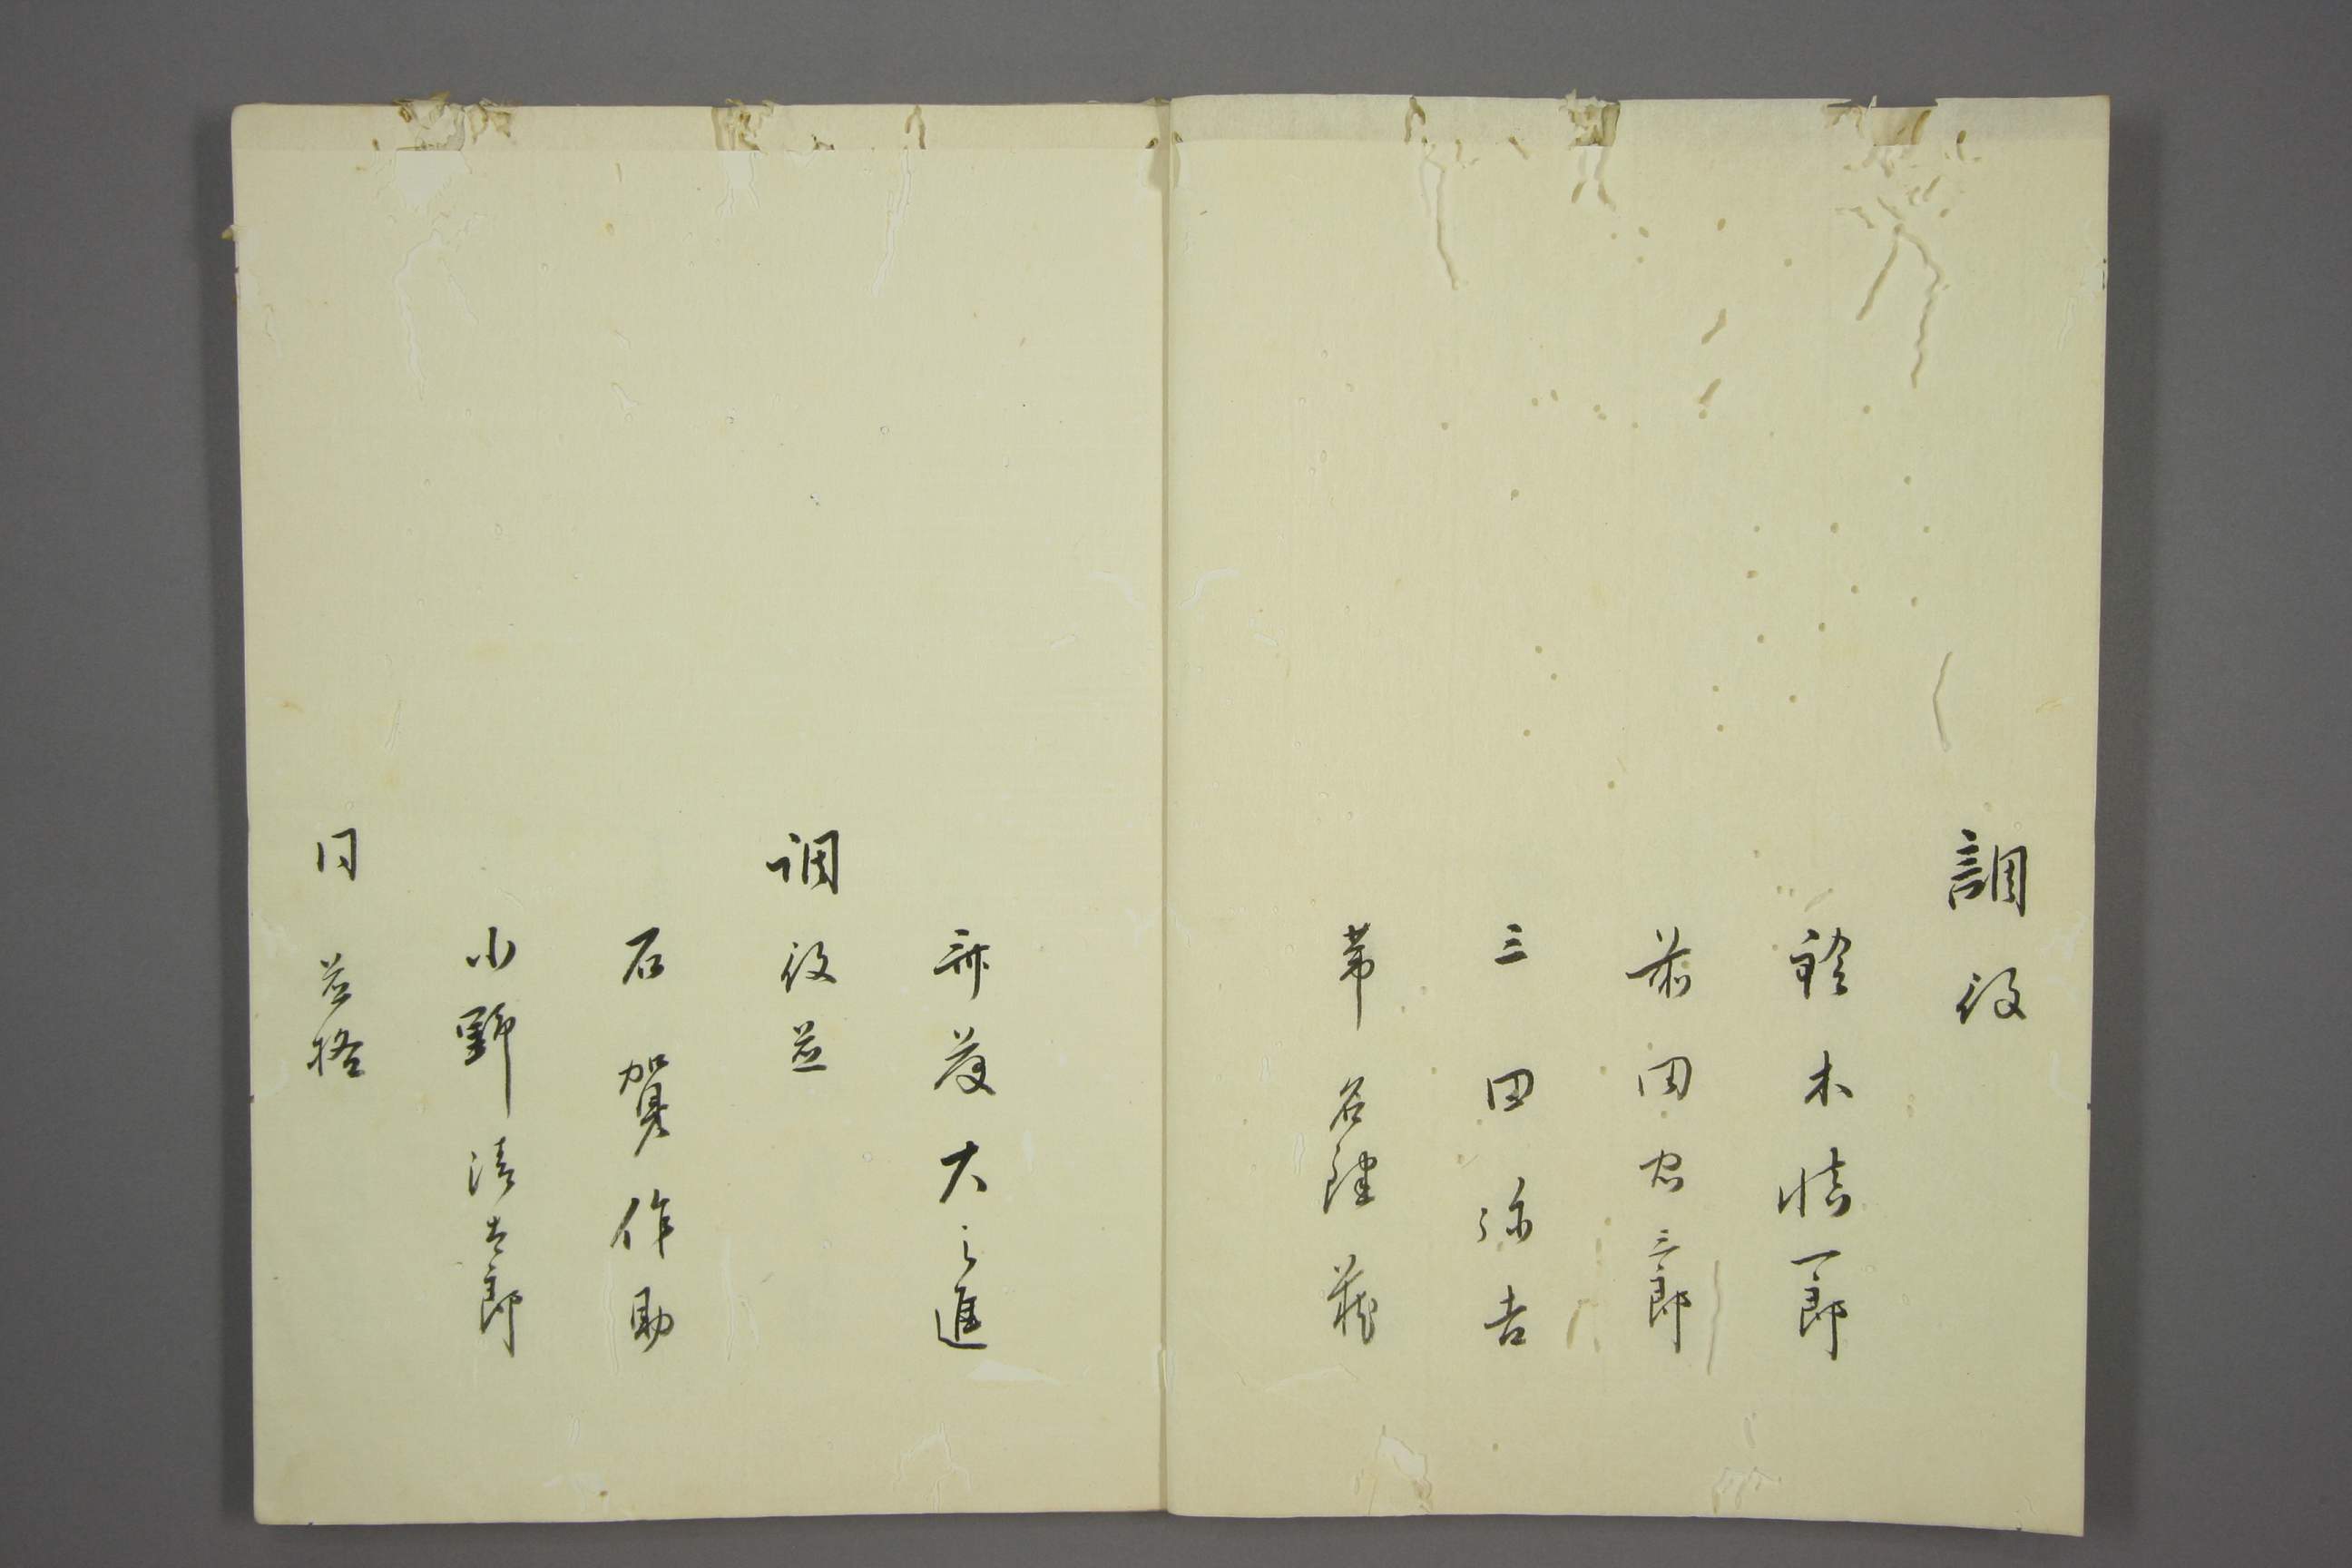 調役
鈴木慎一郎
前田忠三郎
三田弥吉
藤大之進
調役並
石賀作助
小野清太郎
同並格